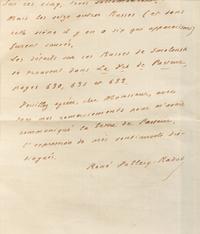 Sur ces cinq, trois
Mais les seize autres Russes (et dans
cette série il y en a six que apparaissent)
furent sauvés.
Les détails sur ces Russes de Smolensk
se trouvent dans La Vie de Pasteur,
pages 630, 631 et 632.
Veuillez agréer, cher Monsieur, avec
tous mes remerciements pour m'avoir
communiqué la lettre de Pasteur,
l'expression de mes sentiments dis-
tingués.
René Vallery-Radot